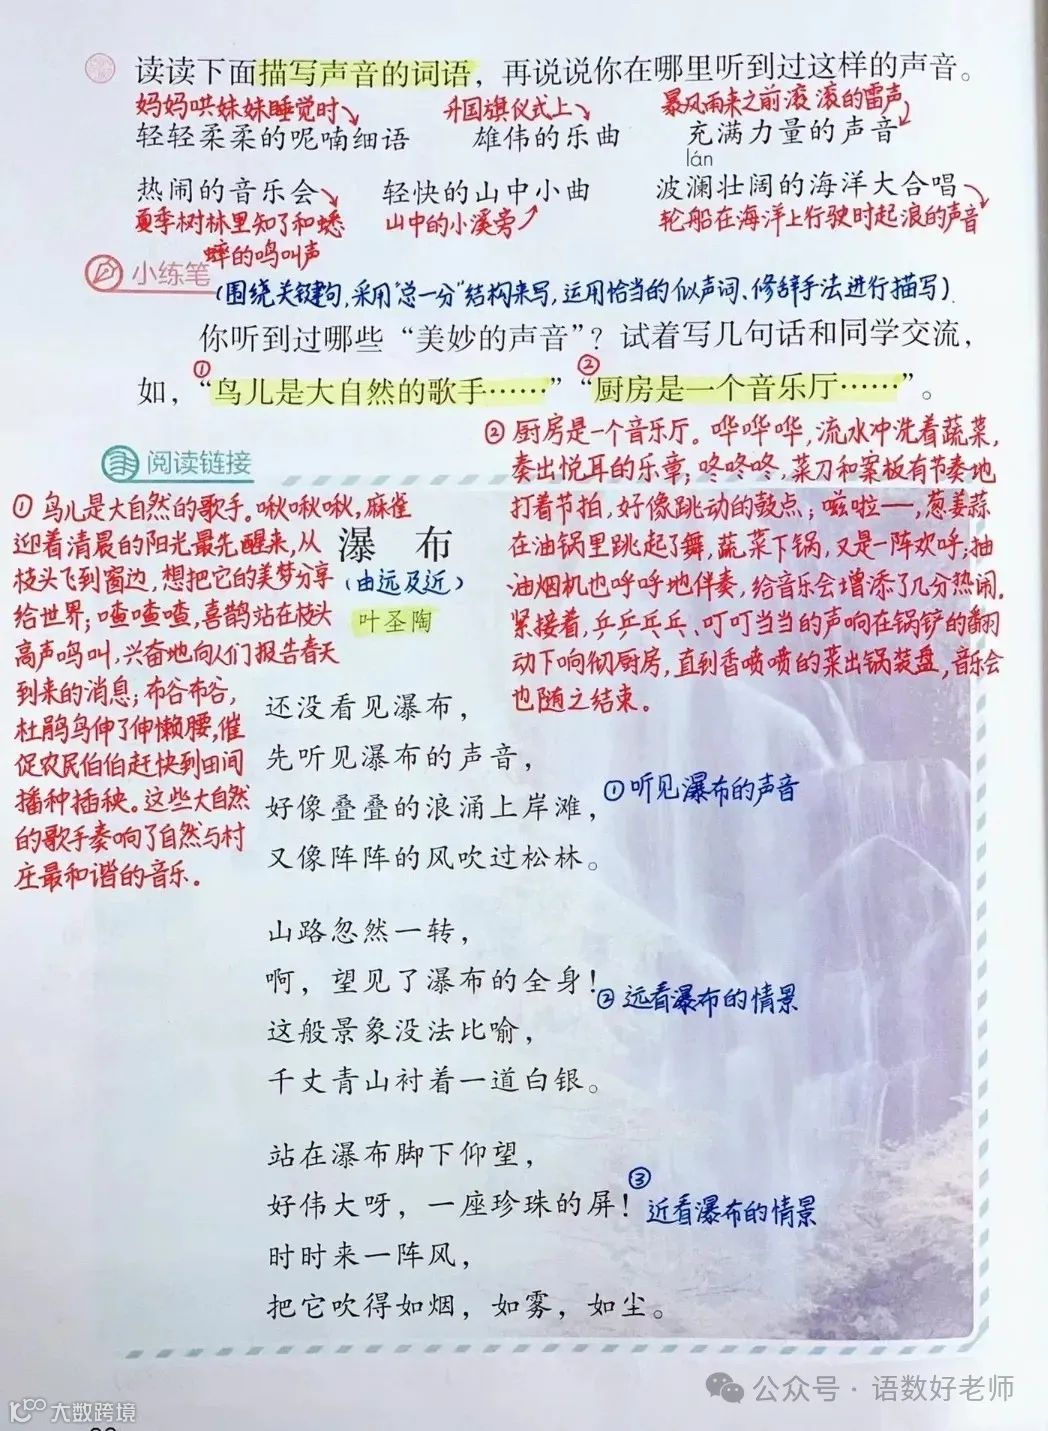 读读下面描写声音的词语，再说说你在哪里听到过这样的声音。
妈妈哄妹妹睡觉时
升国旗仪式上
暴风雨来之前滚滚的雷声
轻轻柔柔的呢喃细语
雄伟的乐曲
充满力量的声音
lán
热闹的音乐会
轻快的山中小曲
波澜壮阔的海洋大合唱
夏季树林里知了和蟋
蟀的鸣叫声
山中的小溪旁
轮船在海洋上行驶时起浪的声音
小练笔
(围绕关键句,采用"总—分"结构来写,运用恰当的似声词、修辞手法进行描写)
你听到过哪些“美妙的声音”？试着写几句话和同学交流，
① ②
如，“鸟儿是大自然的歌手……”“厨房是一个音乐厅……”。
② 厨房是一个音乐厅。哗哗哗,流水冲洗着蔬菜,
奏出悦耳的乐章;咚咚咚,菜刀和案板有节奏地
打着节拍,好像跳动的鼓点;嗞啦——,葱姜蒜
在油锅里跳起了舞,蔬菜下锅,又是一阵欢呼;抽
油烟机也呼呼地伴奏,给音乐会增添了几分热闹.
紧接着,乒乒乓乓、叮叮当当的声响在锅铲的翻
动下响彻厨房,直到香喷喷的菜出锅装盘,音乐会
也随之结束。
阅读链接
① 鸟儿是大自然的歌手。啾啾啾,麻雀
迎着清晨的阳光最先醒来,从
枝头飞到窗边,想把它的美梦分享
给世界;喳喳喳,喜鹊站在枝头
高声鸣叫,兴奋地向人们报告春天
到来的消息;布谷布谷,
杜鹃鸟伸了伸懒腰,催
促农民伯伯赶快到田间
播种插秧。这些大自然
的歌手奏响了自然与村
庄最和谐的音乐。
瀑布
(由远及近)
叶圣陶
还没看见瀑布，
先听见瀑布的声音，
好像叠叠的浪涌上岸滩，
又像阵阵的风吹过松林。
①听见瀑布的声音
山路忽然一转，
啊，望见了瀑布的全身！
这般景象没法比喻，
千丈青山衬着一道白银。
② 远看瀑布的情景
站在瀑布脚下仰望，
好伟大呀，一座珍珠的屏！
时时来一阵风，
把它吹得如烟，如雾，如尘。
③
近看瀑布的情景
公众号 · 语数好老师
大数跨境